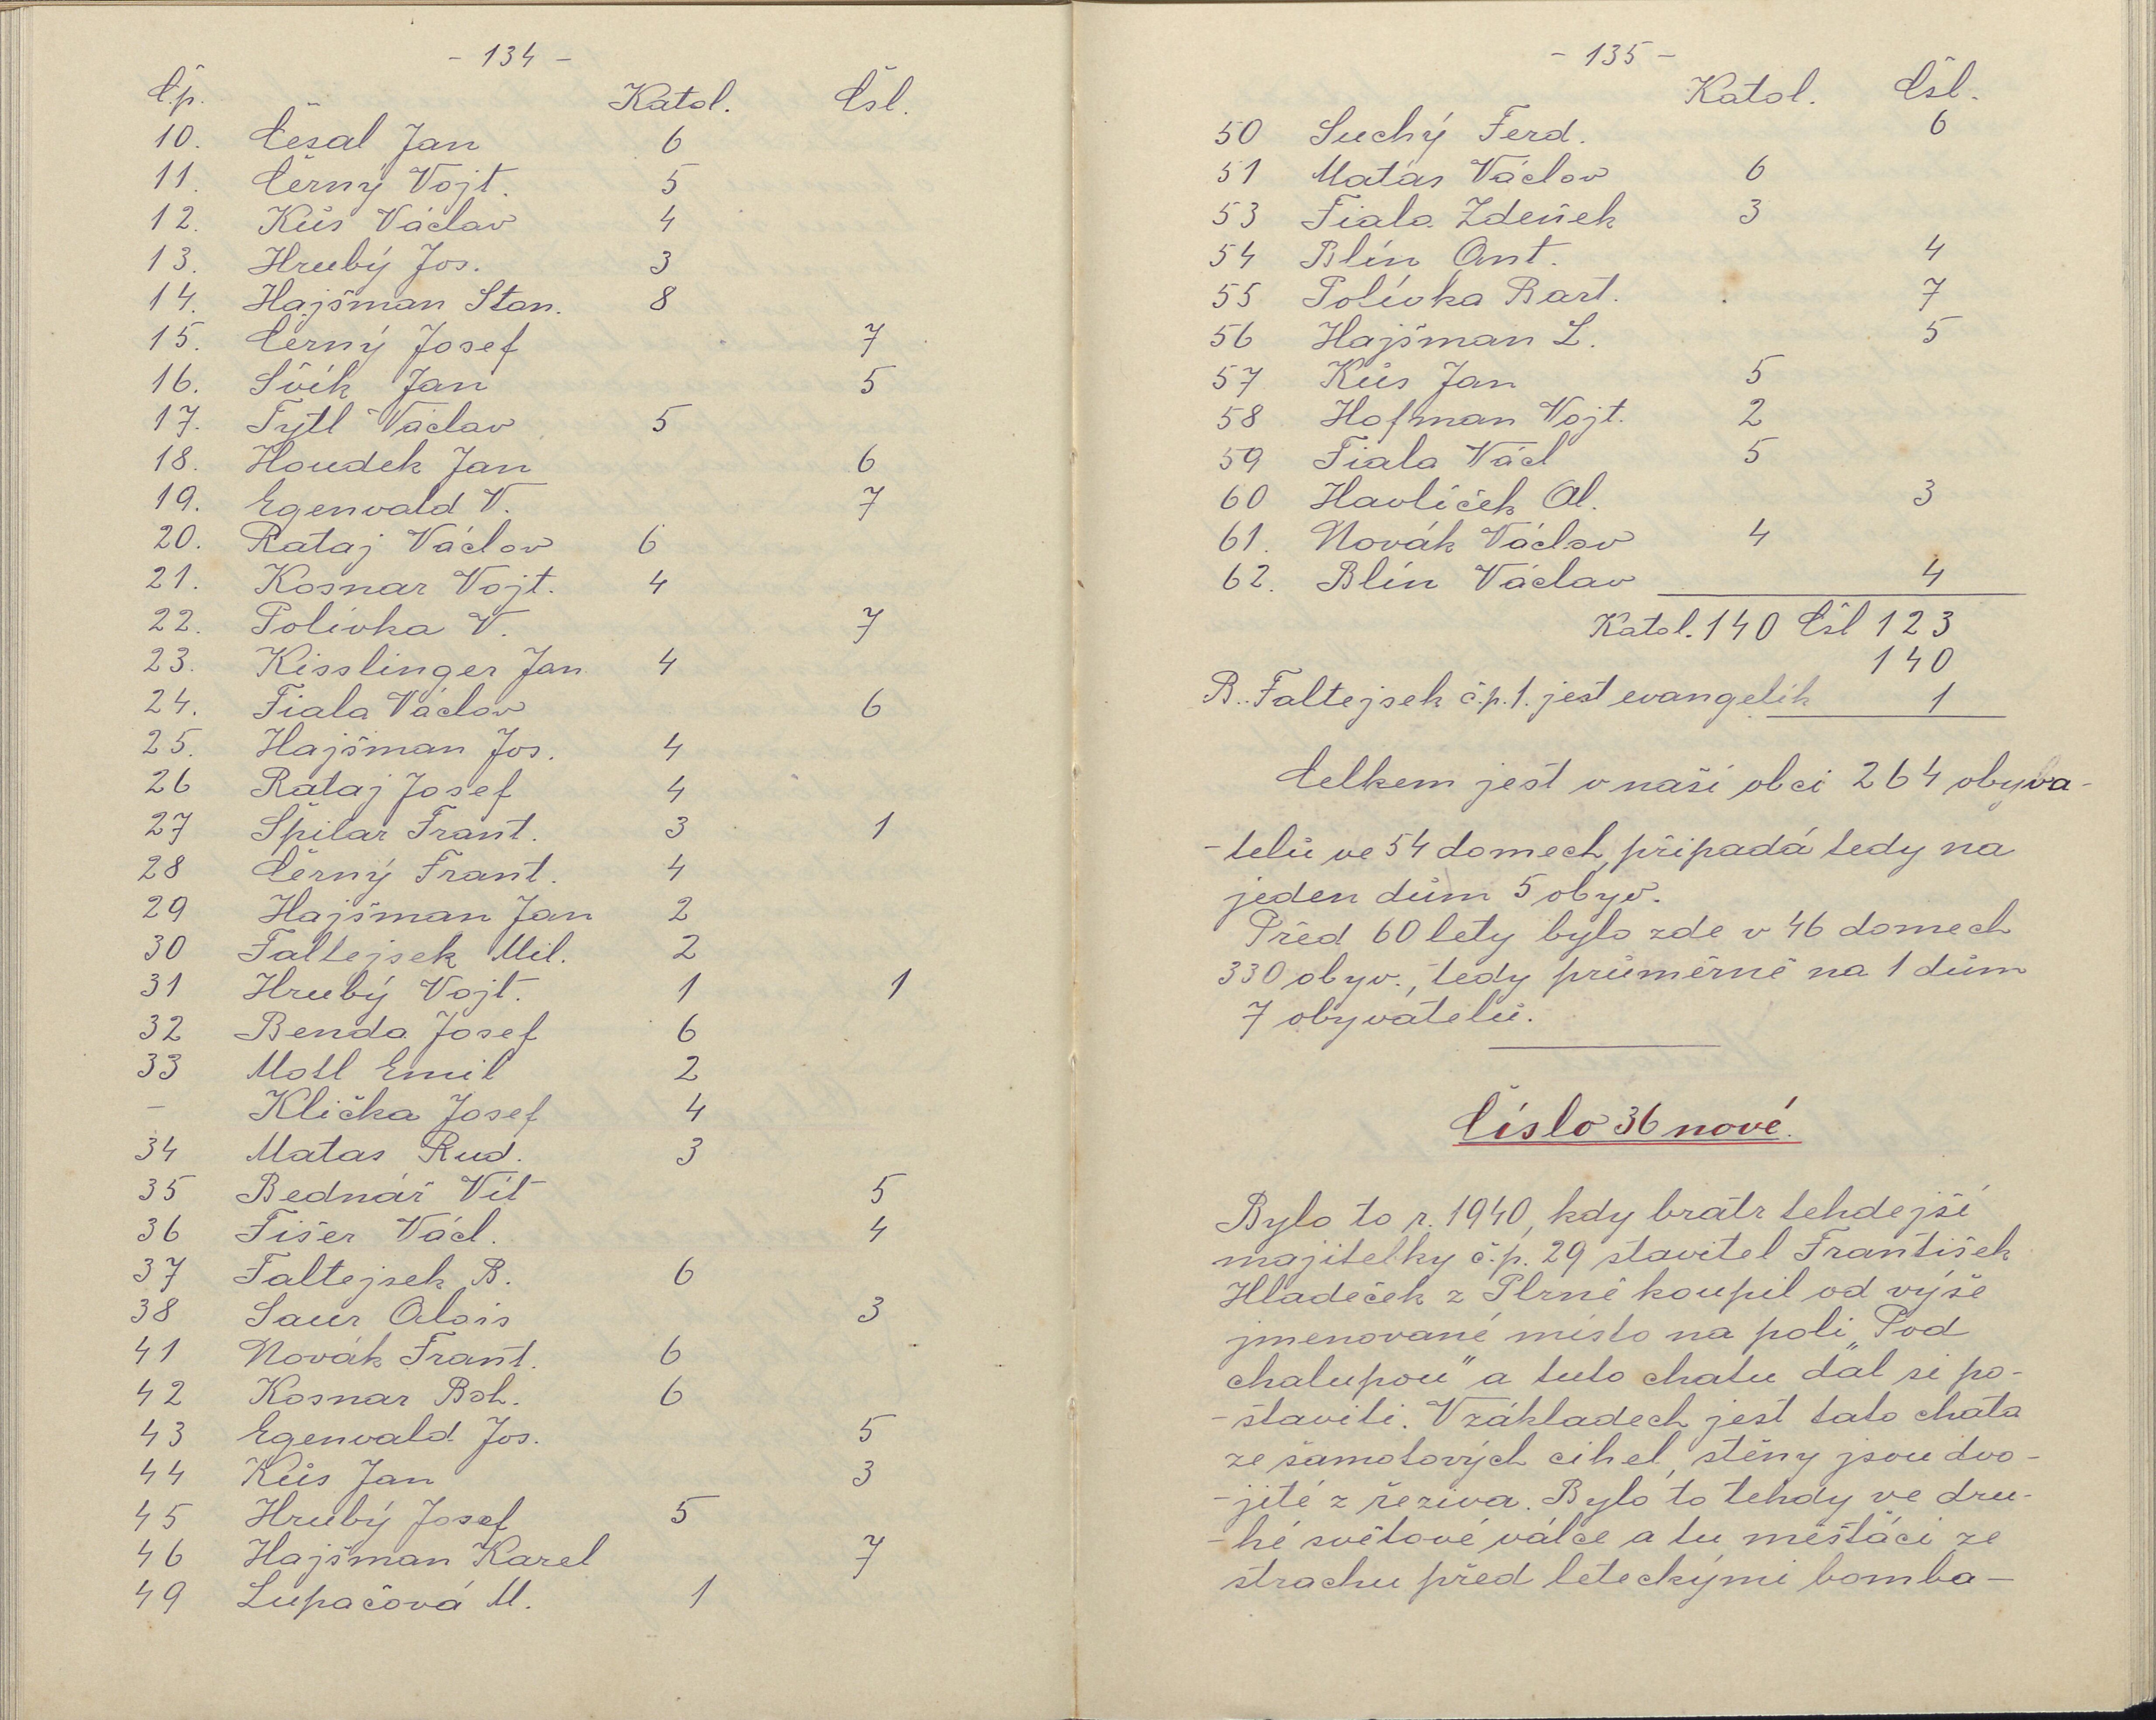 - 134 -
Č.p. Katol. Čsl.
10. Česal Jan 6
11. Černý Vojt. 5
12. Kůs Václav 4
13. Hrubý Jos. 3
14. Hajšman Stan. 8
15. Černý Josef 7
16. Svík Jan 5
17. Tytl Václav 5
18. Houdek Jan 6
19. Egenvald V. 7
20. Rataj Václav 6
21. Kosnar Vojt. 4
22. Polívka V. 7
23. Kisslinger Jan 4
24. Fiala Václav 6
25. Hajšman Jos. 4
26 Rataj Josef 4
27 Špilar Frant. 3 1
28 Černý Frant. 4
29 Hajšman Jan 2
30 Faltejsek Mil. 2
31 Hrubý Vojt. 1 1
32 Benda Josef 6
33 Motl Emil 2
- Klička Josef 4
34 Matas Rud. 3
35 Bednář Vít 5
36 Fišer Václ. 4
37 Faltejsek B. 6
38 Saur Alois 3
41 Novák Frant. 6
42 Kosnar Boh. 6
43 Egenvald Jos. 5
44 Kůs Jan 3
45 Hrubý Josef 5
46 Hajšman Karel 7
49 Lupačová M. 1
- 135 -
Katol. Čsl.
50 Suchý Ferd. 6
51 Matas Václav 6
53 Fiala Zdeněk 3
54 Blín Ant. 4
55 Polívka Bart. 7
56 Hajšman L. 5
57 Kůs Jan 5
58 Hofman Vojt. 2
59 Fiala Václ 5
60 Havlíček Al. 3
61. Novák Václav 4
62. Blín Václav 4
Katol. 140 Čsl 123
140
B. Faltejsek č.p.1. jest evangelík 1
Celkem jest v naší obci 264 obyva-
-telů ve 54 domech, připadá tedy na
jeden dům 5 obyv.
Před 60 lety bylo zde v 46 domech
330 obyv., tedy průměrně na 1 dům
7 obyvatelů.
Číslo 36 nové.
Bylo to r. 1940, kdy bratr tehdejší
majitelky č.p. 29 stavitel František
Hladeček z Plzně koupil od výše
jmenované místo na poli „Pod
chalupou" a tuto chatu dal si po-
-staviti. V základech jest tato chata
ze šamotových cihel, stěny jsou dvo-
-jité z řeziva. Bylo to tehdy ve dru-
-hé světové válce a tu měšťáci ze
strachu před leteckými bomba-